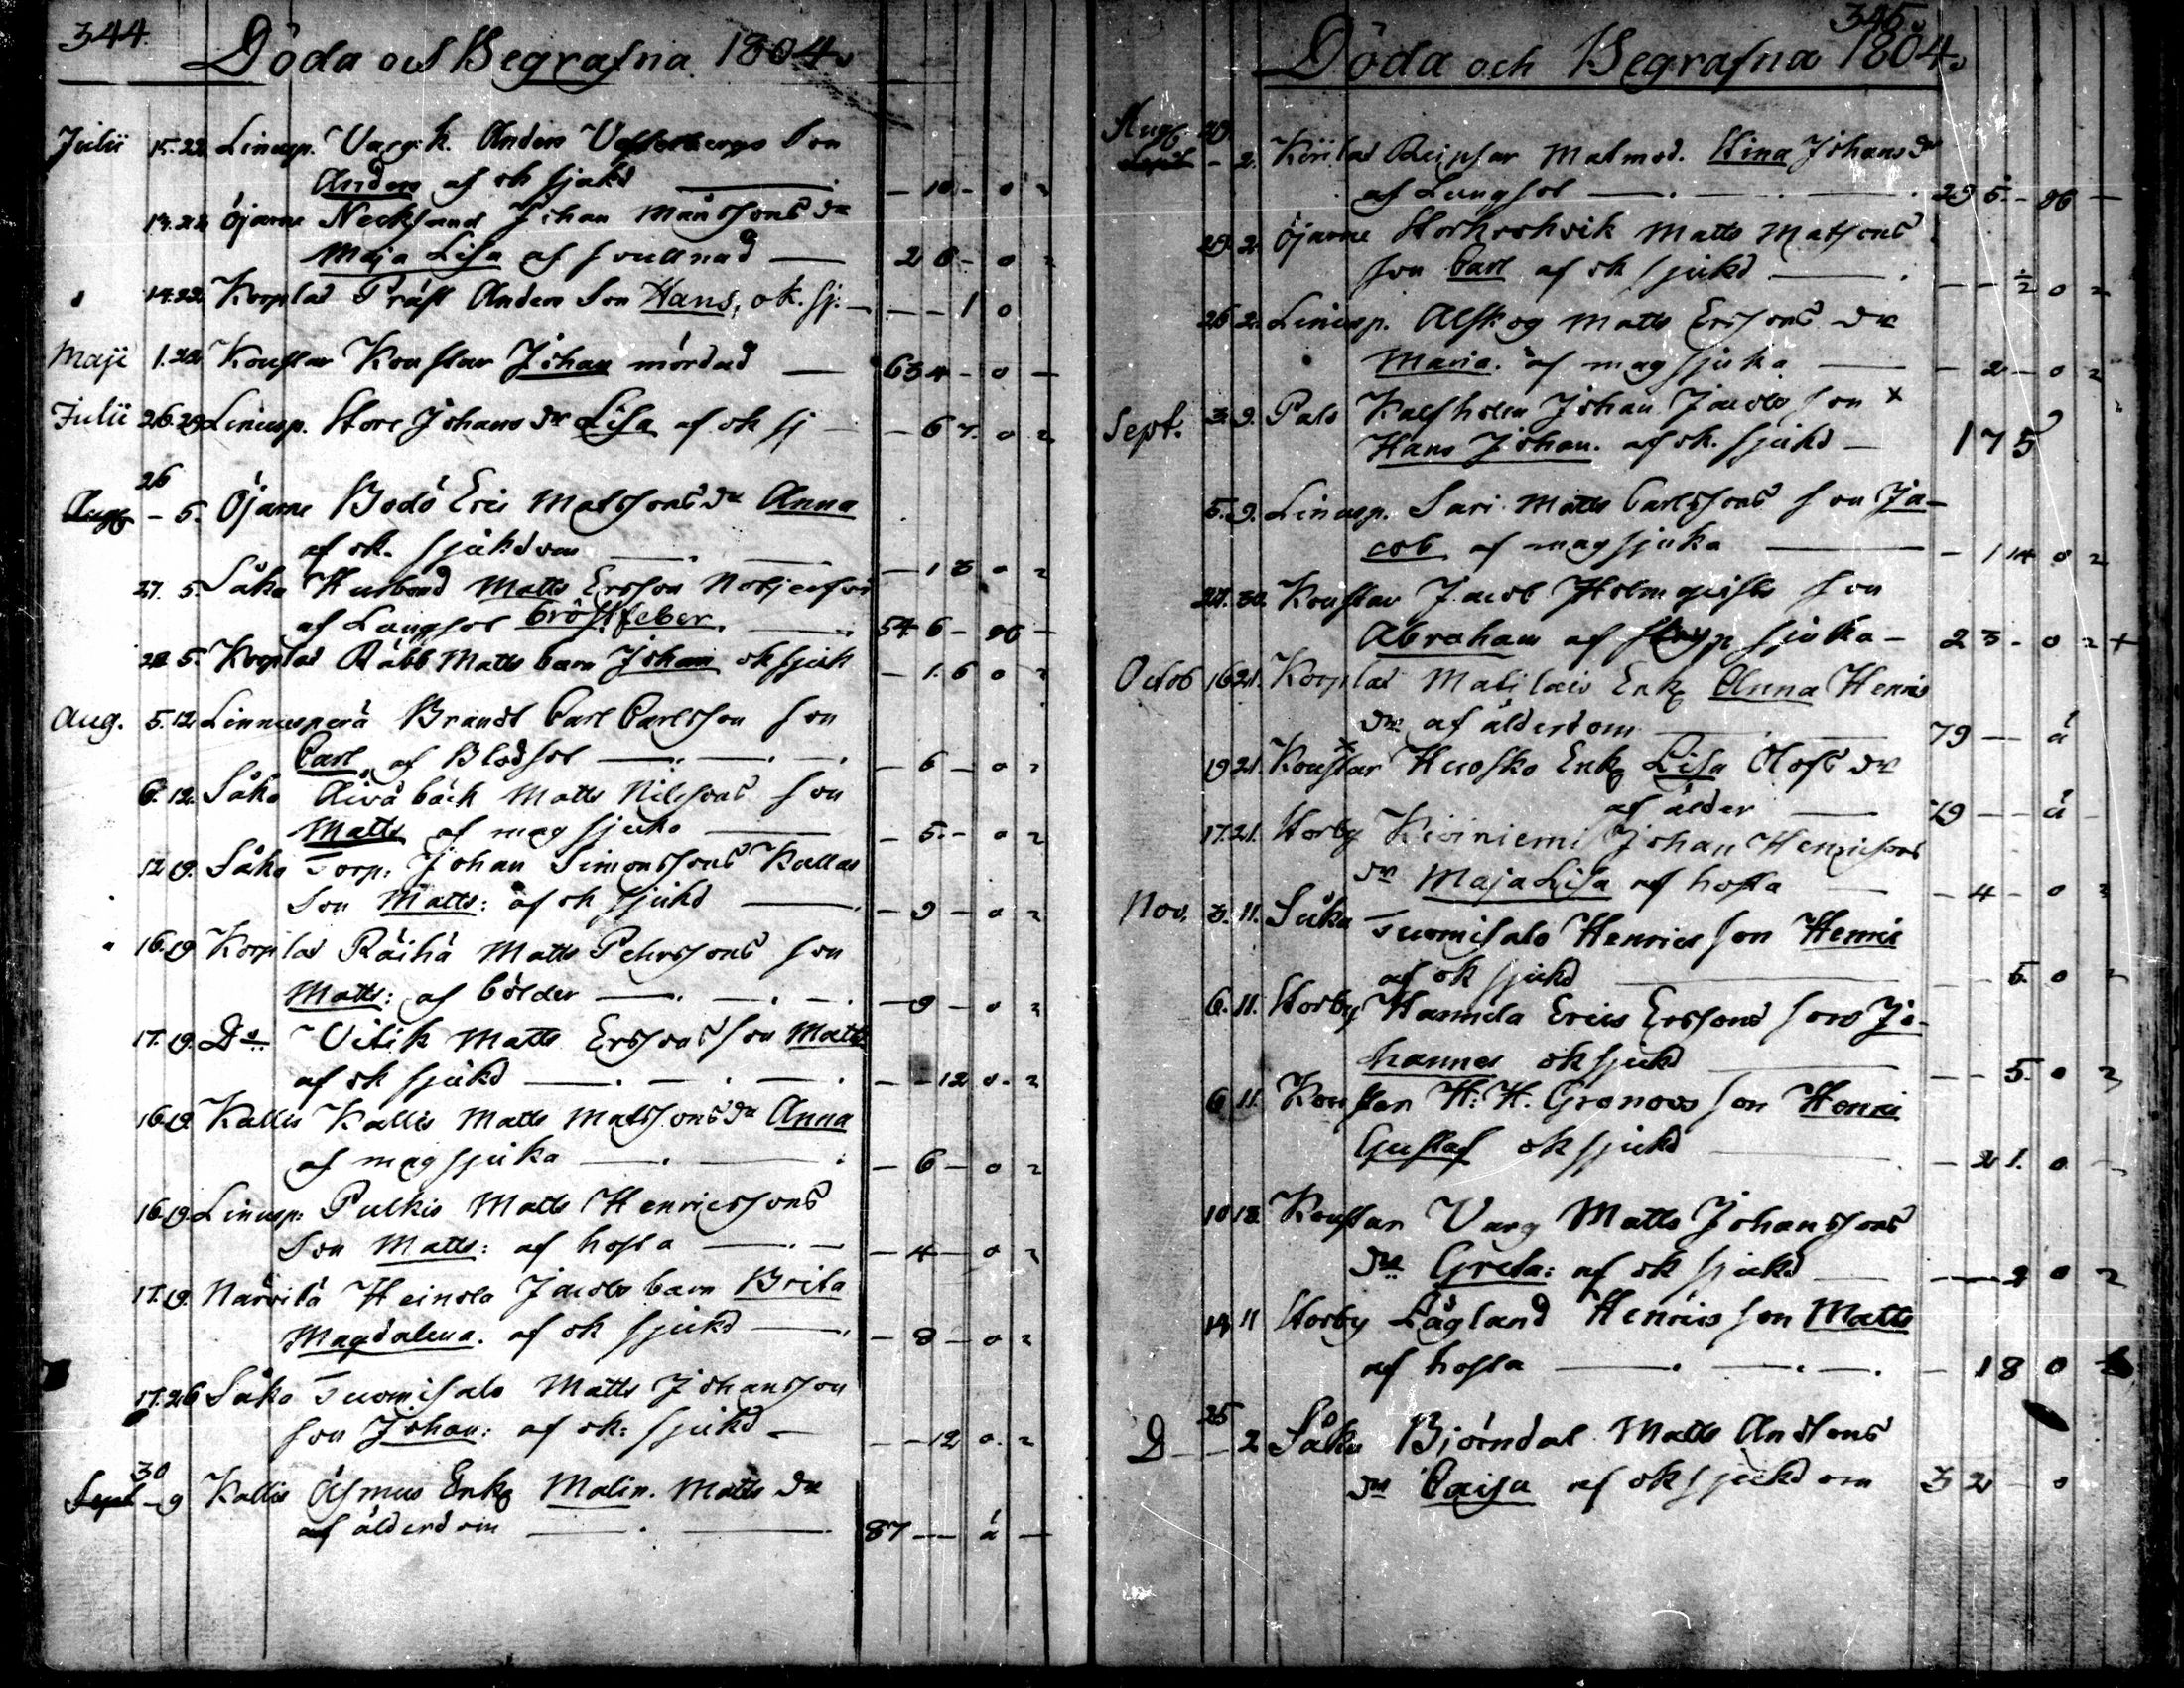 344.
Döda och Begrafna 1804.
Julii 15. 22. Linusp. Varg: k. Anders Vesterbergs Son
Anders af ok sjukd — 10 - o
14. 22. Öjarne Necksund Johan Månssons dr
Maja Lisa af svullnad — 2 6 - o
14. 22. Korplax Präst Anders Son Hans, ok. sj. — 1 o
Maji 1. 22. Konstar Konstar Johan mördad — 63 4 - o —
Julii 26. 29. Linusp. Store Johans dr Lisa af ok sj — 6 7. o
26
Aug — 5. Öjarne Bodö Eric Matssons dr Anna
af ok. sjukdom — 1 3 o
27. 5. Såka Husbond Matts Ersson
af Lungsot bröstfeber. 54 6 - og —
28. 5. Korplax Räbb Matts barn Johan ok sjuk — 1. 6 o
Aug. 5. 12. Linnusperä Brandt Carl Carlsson son
Carl af Blodsot — 6 — o
6. 12. Såka Åivåbäck Matts Nilssons son
Matts af magsjuka — 5. - o
12 19. Såka Torp: Johan Simonssons Kallas
Son Matts: af ok sjukd — 9 — o
16. 19 Korplax Räihä Matts Pehrssons son
Matts: af bölder — 9 - o
17. 19. Do Vitik Matts Erssons son Matts
af ok sjukd — 12 o.
16. 19. Kallis Kallis Matts Matssons dr Anna
af magsjuka — 6 — o
16. 19. Linusp: Pulkis Matts Henricssons
Son Matts: af hosta — 4 — o
17. 19. Närvilä Heinola Jacobs barn Brita
Magdalena. af ok sjukd — 8 — o
17. 26 Såka Tuomisalo Matts Johansson
son Johan: af ok: sjukd — 12 o.
30
Sept — 9 Kallis Åsmus Enk Malin. Matts dr
af ålderdom — 87 — å —
345.
Döda och Begrafna 1804.
Aug. 29.
Sept — 2. Korplax Reipsar Malmod. Stina Johans dr
af Lungsot — 29 5. - og —
29. 2. Öjarne Storkrokvik Matts Matsons
son Carl af ok sjukd — ½ o
26 2. Linusp. Alskog Matts Ersons dr
Maria. af magsjuka — 2 — o
Sept. 3. 9. Palo Kalfholm Johan Jacobs son x
Hans Johan. af ok. sjukd — 1 7 5
5. 9. Linusp. Sari Matts Carlssons son Ja-
cob af magsjuka — 1 14 o
24. 30. Konstar Jacob Holmqvists son
Abraham af sjuka — 2 3 - o +
Octob 16 21. Korplax Matilais Enk Anna Henris
dr af ålderdom — 79 — å
19 21. Konstar Huosko Enk Lisa Olofs dr
af ålder — 79 — å
17. 21. Storby Kiviniemi Johan Henricsons
dr Maja Lisa af hosta — 4 - o
Nov. 3. 11. Såka Tuomisalo Henrics son Henric
af ok sjukd — 5. o
6. 11. Storby Hannila Erics Erssons son Jo-
hannes ok sjukd — 5. o
6 11. Konstar H: H. Gronovs son Henric
Gustaf ok sjukd — 2 1. o
10 18. Konstar Varg Matts Johanssons
dr Greta: af ok sjukd — 2 o
14 11 Storby Lågland Henrics son Matts
af hosta — 1 8 o
25
D — 2 Såka Björndal Matts Andsons
dr Caisa af ok sjukdom 3 2 - o